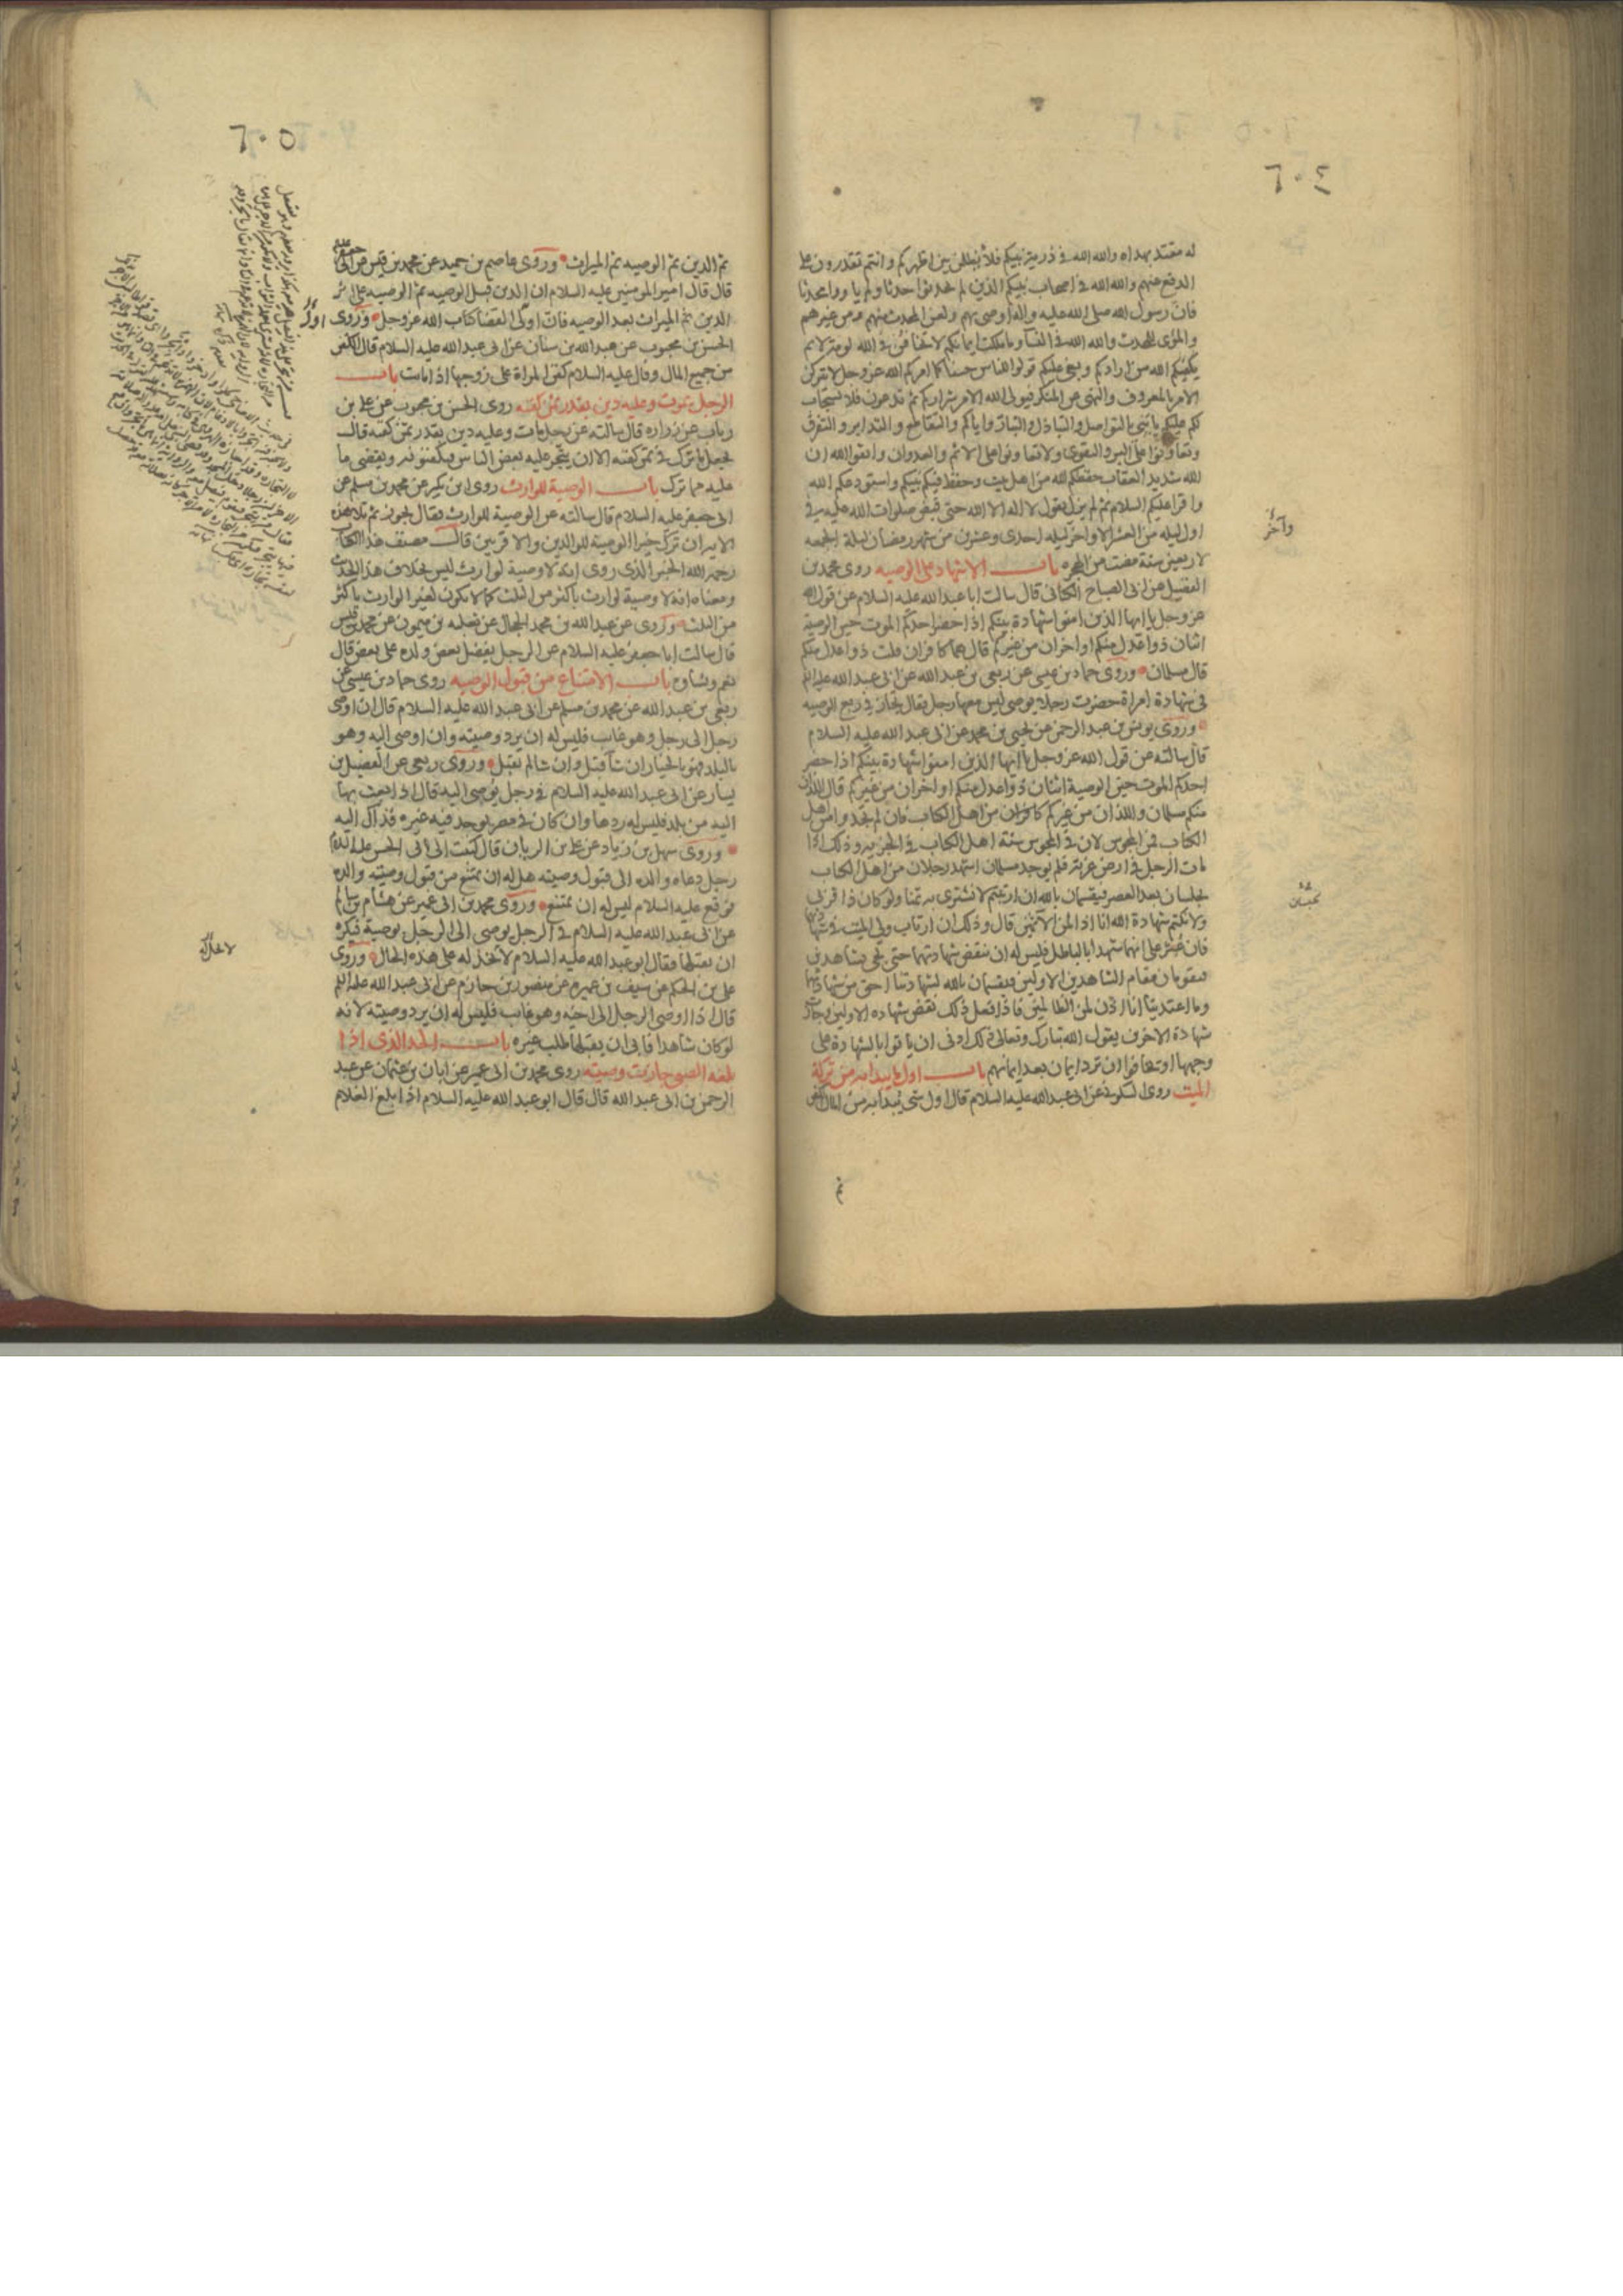 ٦٠٤
له مقتد بهداه والله الله في ذرية نبيكم فلا يظلمن بين اظهركم وانتم تقدرون على
الدفع عنهم والله الله في اصحاب نبيكم الذين لم يحدثوا حدثا ولم ياووا محدثا
فان رسول الله صلى الله عليه واله اوصى بهم ولعن المحدث منهم ومن غيرهم
والمؤوى للمحدث والله الله في النسآء وما ملكت ايمانكم لا تخافن في الله لومة لائم
يكفيكم الله من ارادكم وبغى عليكم قولوا للناس حسنا كما امركم الله عز وجل لا تتركن
الامر بالمعروف والنهى عن المنكر فيولى الله الامر شراركم ثم تدعون فلا يستجاب
لكم عليكم يا بنى بالتواصل والتباذل والتبار واياكم والتقاطع والتدابر والتفرق
وتعاونوا على البر والتقوى ولا تعاونوا على الاثم والعدوان واتقوا الله ان
الله شديد العقاب حفظكم الله من اهل بيت وحفظ فيكم نبيكم واستودعكم الله
واقرا عليكم السلام ثم لم يزل يقول لا اله الا الله حتى قبض صلوات الله عليه في
اول ليله من العشر الاواخر ليله احدى وعشرين من شهر رمضان ليلة الجمعه
وآخر
لاربعين سنة مضت من الهجره باب الاشهاد على الوصيه روى محمد بن
الفضيل عن ابى الصباح الكنانى قال سالت ابا عبد الله عليه السلام عن قول الله
عز وجل يا ايها الذين امنوا شهادة بينكم اذا حضر احدكم الموت حين الوصية
اثنان ذوا عدل منكم او اخران من غيركم قال هما كافران قلت ذوا عدل منكم
قال مسلمان وروى حماد بن عيسى عن ربعى بن عبد الله عن ابى عبد الله عليه السلم
فى شهادة امراة حضرت رجلا يوصى ليس معها رجل فقال يجاز في ربع الوصيه
وروى يونس بن عبد الرحمن عن يحيى بن محمد عن ابى عبد الله عليه السلام
قال سالته عن قول الله عز وجل يا ايها الذين امنوا شهادة بينكم اذا حضر
احدكم الموت حين الوصية اثنان ذوا عدل منكم او اخران من غيركم قال اللذان
منكم مسلمان واللذان من غيركم كافران من اهل الكتاب فان لم تجدوا من اهل
الكتاب فمن المجوس لان في المجوس سنة اهل الكتاب في الجزيه وذلك اذا
مات الرجل في ارض غربة فلم يوجد مسلمان اشهد رجلان من اهل الكتاب
يحبسان بعد العصر فيقسمان بالله ان ارتبتم لا نشترى به ثمنا ولو كان ذا قربى
ولا نكتم شهادة الله انا اذا لمن الآثمين قال وذلك ان ارتاب ولى الميت في شهادتهما
فان عثر على انهما شهدا بالباطل فليس له ان ينقض شهادتهما حتى يجى بشاهدين
فيقومان مقام الشاهدين الاولين فيقسمان بالله لشهادتنا احق من شهادتهما
وما اعتدينا انا اذن لمن الظالمين فاذا فعل ذلك نقض شهاده الاولين وجازت
شهادة الاخرين يقول الله تبارك وتعالى ذلك ادنى ان ياتوا بالشهادة على
وجهها او يخافوا ان ترد ايمان بعد ايمانهم باب اول ما يبدا به من تركة
الميت روى السكونى عن ابى عبد الله عليه السلام قال اول شى يبدا به من المال الكفن
ثم
٦٠٥
ثم الدين ثم الوصيه ثم الميراث وروى عاصم بن حميد عن محمد بن قيس عن ابى جعفر
قال قال امير المومنين عليه السلام ان الدين قبل الوصيه ثم الوصيه على اثر
الدين ثم الميراث بعد الوصيه فان اولى القضا كتاب الله عز وجل وروى
الحسن بن محبوب عن عبد الله بن سنان عن ابى عبد الله عليه السلام قال الكفن
من جميع المال وقال عليه السلام كفن المراة على زوجها اذا ماتت باب
الرجل يموت وعليه دين بقدر ثمن كفنه روى الحسن بن محبوب عن على بن
رياب عن زراره قال سالته عن رجل مات وعليه دين بقدر ثمن كفنه قال
يجعل ما ترك في ثمن كفنه الا ان يتجر عليه بعض الناس فيكفنونه ويقضى ما
عليه مما ترك باب الوصية للوارث روى ابن بكير عن محمد بن مسلم عن
ابى جعفر عليه السلام قال سالته عن الوصية للوارث فقال يجوز ثم تلا هذه
الايه ان ترك خيرا الوصية للوالدين والاقربين قال مصنف هذا الكتاب
رحمه الله الخبر الذى روى انه لا وصية لوارث ليس بخلاف هذا الحديث
ومعناه انه لا وصية لوارث باكثر من الثلث كما لا يكون لغير الوارث باكثر
من الثلث وروى عن عبد الله بن محمد الحجال عن ثعلبه بن ميمون عن محمد بن قيس
قال سالت ابا جعفر عليه السلام عن الرجل يفضل بعض ولده على بعض قال
نعم ونساوه باب الامتناع من قبول الوصيه روى حماد بن عيسى عن
ربعى بن عبد الله عن محمد بن مسلم عن ابى عبد الله عليه السلام قال ان اوصى
رجل الى رجل وهو غايب فليس له ان يرد وصيته وان اوصى اليه وهو
بالبلد فهو بالخيار ان شآ قبل وان شا لم يقبل وروى ربعى عن الفضيل بن
يسار عن ابى عبد الله عليه السلام في رجل يوصى اليه قال اذا بعث بها
اليه من بلد فليس له ردها وان كان في مصر يوجد فيه غيره فذاك اليه
وروى سهل بن زياد عن على بن الريان قال كتبت الى ابى الحسن عليه السلام
رجل دعاه والده الى قبول وصيته هل له ان يمتنع من قبول وصية والده
فوقع عليه السلام ليس له ان يمتنع وروى محمد بن ابى عمير عن هشام بن سالم
عن ابى عبد الله عليه السلام في الرجل يوصى الى الرجل بوصية فيكره
ان يقبلها فقال ابو عبد الله عليه السلام لا يخذله على هذه الحال وروى
على بن الحكم عن سيف بن عميره عن منصور بن حازم عن ابى عبد الله عليه السلم
قال اذا اوصى الرجل الى اخيه وهو غايب فليس له ان يرد وصيته لانه
لو كان شاهدا فابى ان يقبلها طلب غيره باب الحد الذى اذا
بلغه الصبى جازت وصيته روى محمد بن ابى عمير عن ابان بن عثمان عن عبد
الرحمن بن ابى عبد الله قال قال ابو عبد الله عليه السلام اذا بلغ الغلام